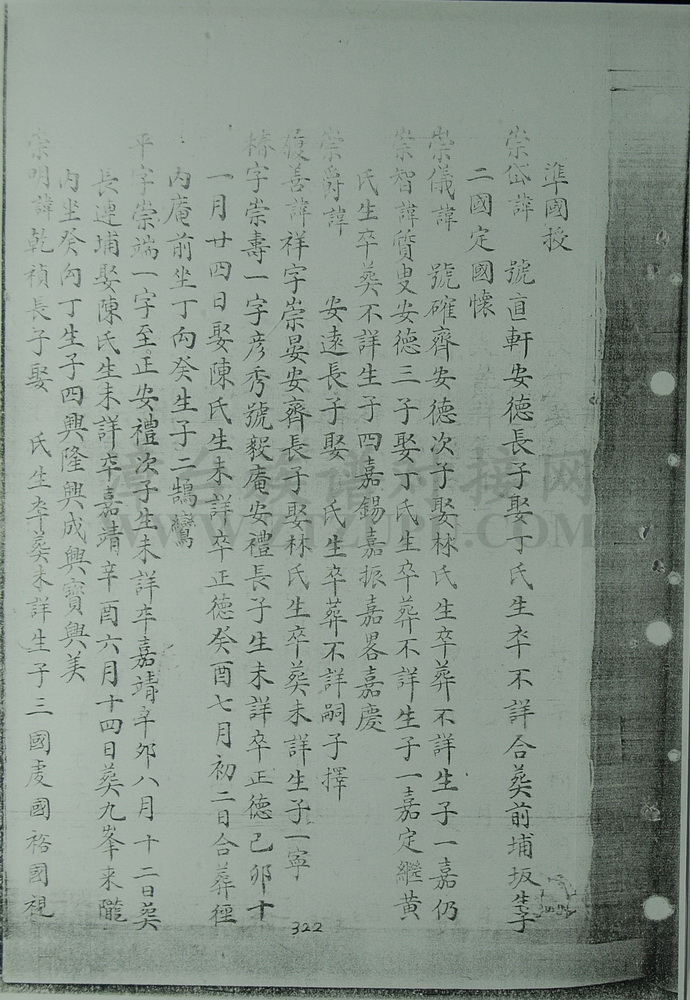 準國授
崇岱諱　號直軒安德長子娶丁氏生卒不詳合葬前埔坂生子
二國定國懷
崇儀諱　號確齊安德次子娶林氏生卒葬不詳生子一嘉仍
崇智諱質叟安德三子娶丁氏生卒葬不詳生子一嘉定繼黃
氏生卒葬不詳生子四嘉錫嘉振嘉畧嘉慶
崇爵諱　安遠長子娶　氏生卒葬不詳嗣子擇
復善諱祥字崇晏安齊長子娶林氏生卒葬未詳生子一寧
椿字崇壽一字彥秀號毅庵安禮長子生未詳卒正德己卯十
一月廿四日娶陳氏生未詳卒正德癸酉七月初二日合葬徑
內庵前坐丁向癸生子二鵠鸞
平字崇端一字至正安禮次子生未詳卒嘉靖辛卯八月十二日葬
長連埔娶陳氏生未詳卒嘉靖辛酉六月十四日葬九峯來隴
內坐癸向丁生子四興隆興成興寶興美
崇明諱乾禎長子娶　氏生卒葬未詳生子三國虔國裕國視
322
漳台族谱对接网
WWW.ZTZUPU.COM